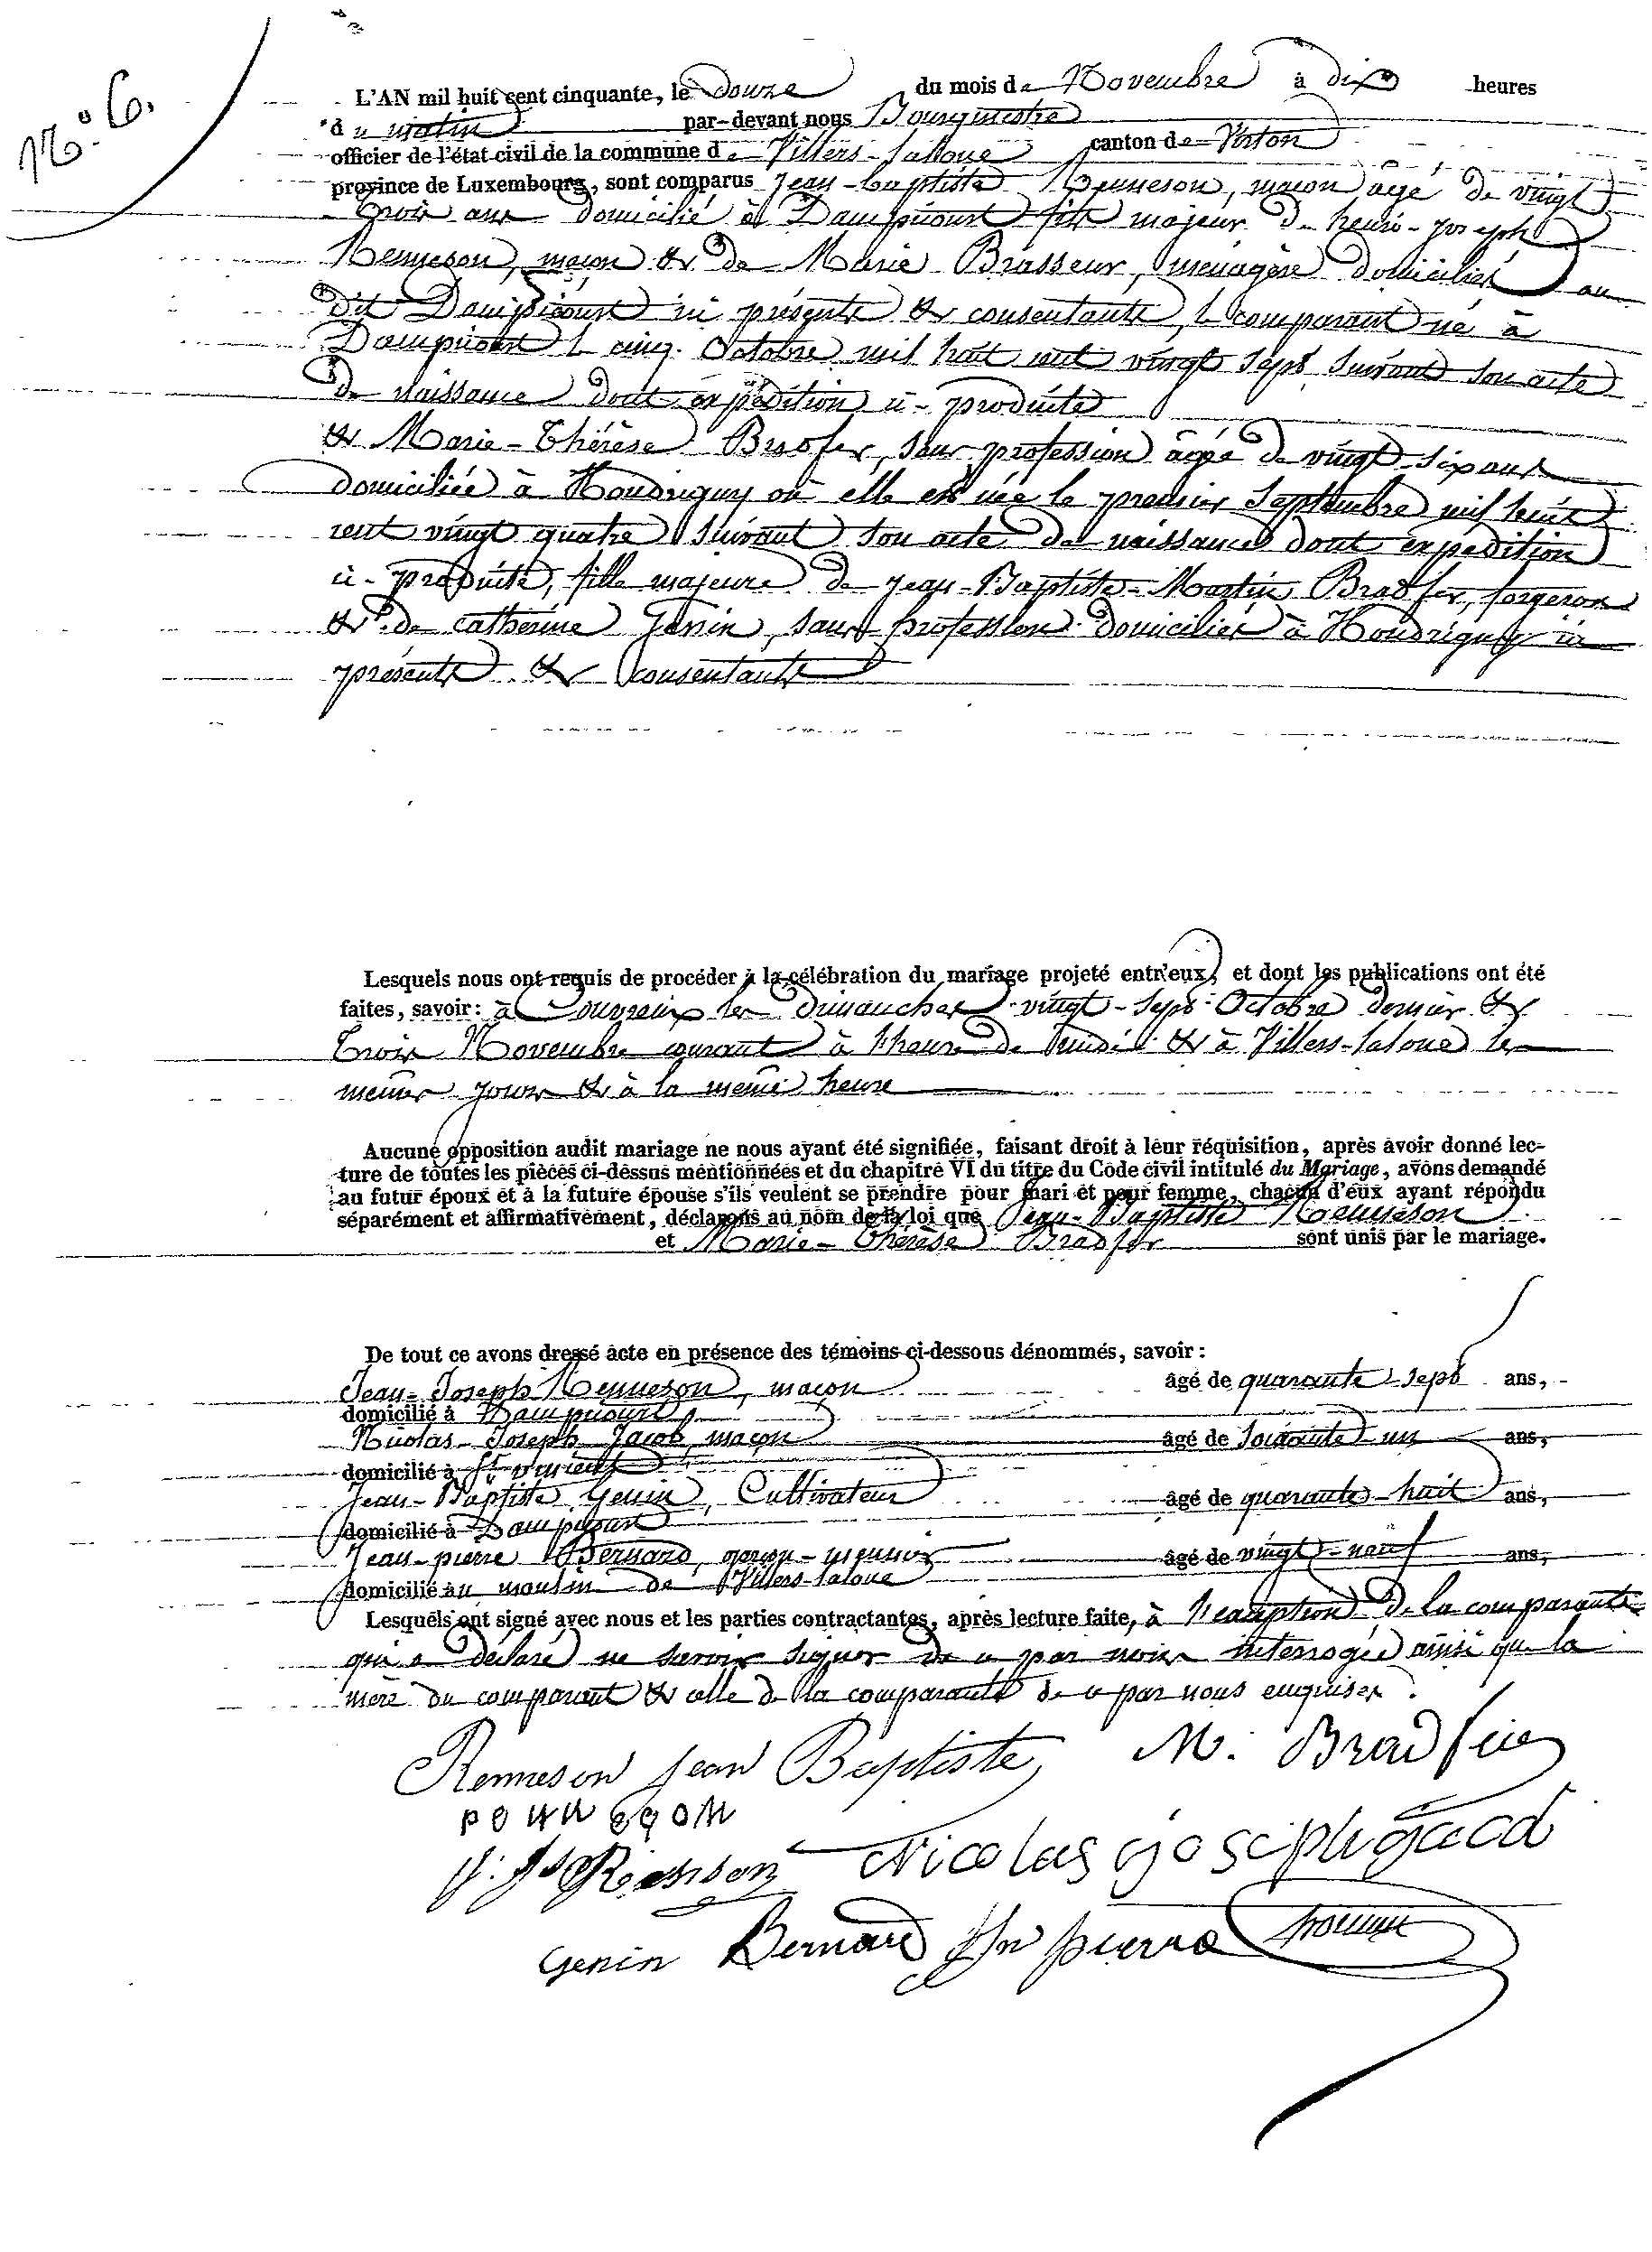 N.° 6.
L'AN mil huit cent cinquante, le Douze du mois de Novembre à dix heures
du matin par-devant nous Bourgmestre
officier de l'état civil de la commune de Villers-laLoue canton de Virton
province de Luxembourg, sont comparus Jean-baptiste Renneson, maçon âgé de vingt
trois ans domicilié à Dampicourt fils majeur de henri-joseph
Renneson, maçon & de Marie Brasseur, ménagère domiciliés au
dit Dampicourt ici présents & consentants, le comparant né à
Dampicourt le cinq Octobre mil huit cent vingt sept suivant son acte
de naissance dont expédition ci-produite
& Marie-Thérèse Bradfer, sans profession âgée de vingt-six ans
domiciliée à Houdrigny où elle est née le premier Septembre mil huit
cent vingt quatre suivant son acte de naissance dont expédition
ci-produite, fille majeure de Jean-Baptiste-Martin Bradfer, forgeron
& de Catherine Genin, sans profession domiciliés à Houdrigny ici
présents & consentants
Lesquels nous ont requis de procéder à la célébration du mariage projeté entr'eux, et dont les publications ont été
faites, savoir: à Couvreux les Dimanches vingt-sept Octobre dernier &
trois Novembre courant à l'heure de midi & à Villers-laloue les
mêmes jours & à la même heure
Aucune opposition audit mariage ne nous ayant été signifiée, faisant droit à leur réquisition, après avoir donné lec-
ture de toutes les pièces ci-dessus mentionnées et du chapitre VI du titre du Code civil intitulé du Mariage, avons demandé
au futur époux et à la future épouse s'ils veulent se prendre pour mari et pour femme, chacun d'eux ayant répondu
séparément et affirmativement, déclarons au nom de la loi que Jean-Baptiste Renneson
et Marie-Thérèse Bradfer sont unis par le mariage.
De tout ce avons dressé acte en présence des témoins ci-dessous dénommés, savoir:
Jean-Joseph Renneson, maçon âgé de quarante-sept ans,
domicilié à Dampicourt
Nicolas-Joseph Jacob, maçon âgé de soixante un ans,
domicilié à St vincent
Jean-Baptiste Genin, Cultivateur âgé de quarante-huit ans,
domicilié à Dampicourt
Jean-pierre Bernard, garçon-meunier âgé de vingt-neuf ans,
domicilié au moulin de Villers-laloue
Lesquels ont signé avec nous et les parties contractantes, après lecture faite, à l'exception de la comparante
qui a déclaré ne savoir signer de ce par nous interrogée ainsi que la
mère du comparant & celle de la comparante de ce par nous enquises.
Renneson Jean Baptiste M. Bradfer
J. Jh Renson Nicolas joseph jacob
Genin Bernard Jn pierre